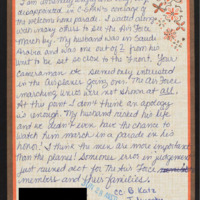 I am writing
disappointed in
the welcome home parade. I waited along
with many others to see the Air Force
March by. My husband was in Saudi
Arabia and was one out of 2 from his
unit to be set so close to the front. Your
cameraman etc seemed only interested
in the airplanes going over. The Air Force
marching Units was not shown at all.
At this point I don't think an apology
is enough. My husband risked his life
and we didn't even have the chance to
watch him march in a parade on his
hero! I think the men are more important
than the planes! Someones error in judgement
just ruined most for The Air Force
members and their families.
cc B. Katz